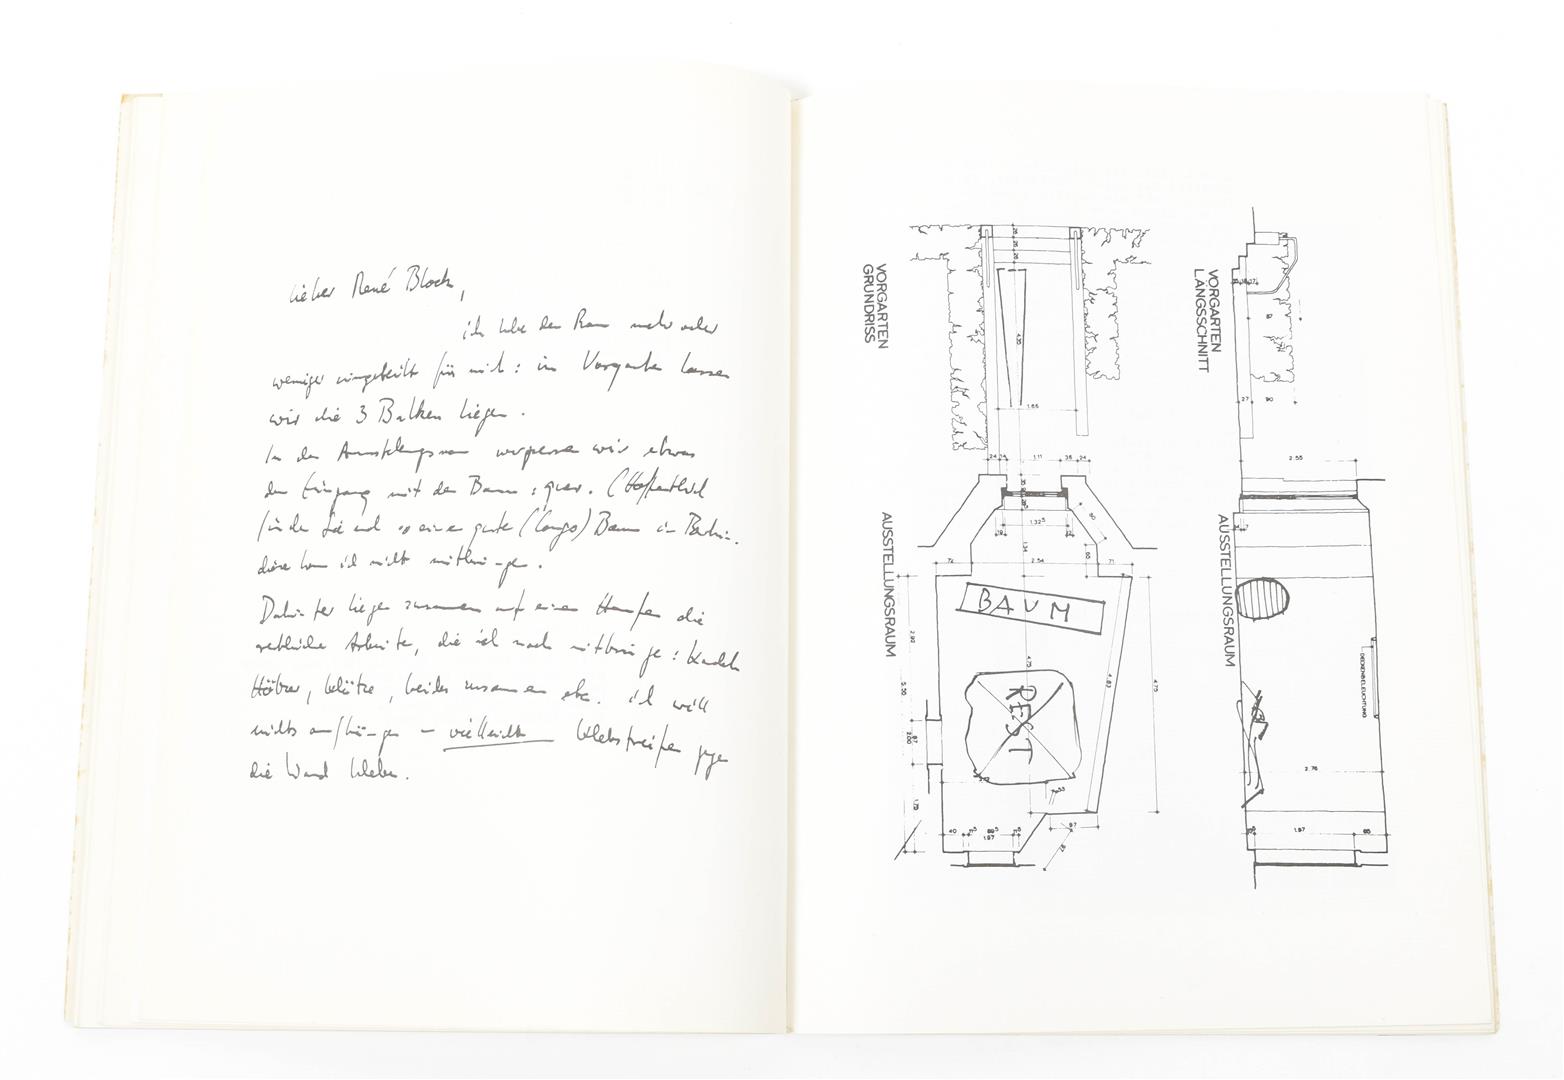 lieber René Block,
ich habe den Raum mehr oder
weniger eingeteilt für mich: im Vorgarten lassen
wir die 3 Balken liegen.
In den Ausstellungsraum versperren wir etwas
den Eingang mit dem Baum: quer. (Hoffentlich
finden Sie auch so eine gute (lange) Baum in Berlin.
diese kann ich nicht mitbringen.
Dahinter liegen zusammen auf einem Haufen die
restliche Arbeiten, die ich noch mitbringe: Kacheln
Hölzer, klötze, beides zusammen etc. ich will
nichts aufhängen – vielleicht Klebstreifen gegen
die Wand kleben.
VORGARTEN
GRUNDRISS
VORGARTEN
LÄNGSSCHNITT
26
26
26
4.35
1.65
24
14
1.11
35
24
27
90
2.55
AUSSTELLUNGSRAUM
AUSSTELLUNGSRAUM
1.32⁵
80
1.34
2.54
72
71
BAUM
REST
4.75
4.83
4.75
2.90
5.50
87
2.00
1.75
55
97
40
88⁵
1.97
DECKENBELEUCHTUNG
2.76
1.97
85